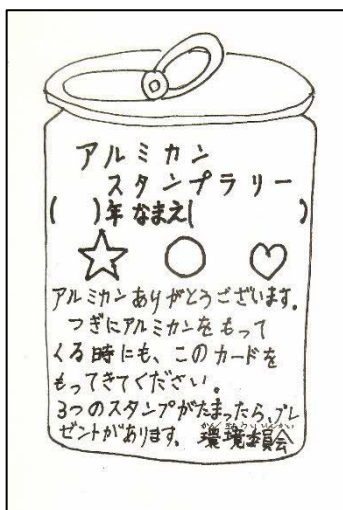 アルミカン
スタンプラリー
(　)年 なまえ(　　　)
アルミカンありがとうございます。
つぎにアルミカンをもって
くる時にも、このカードを
もってきてください。
3つのスタンプがたまったら、プレ
ゼントがあります。 環境委員会
かんきょういいんかい